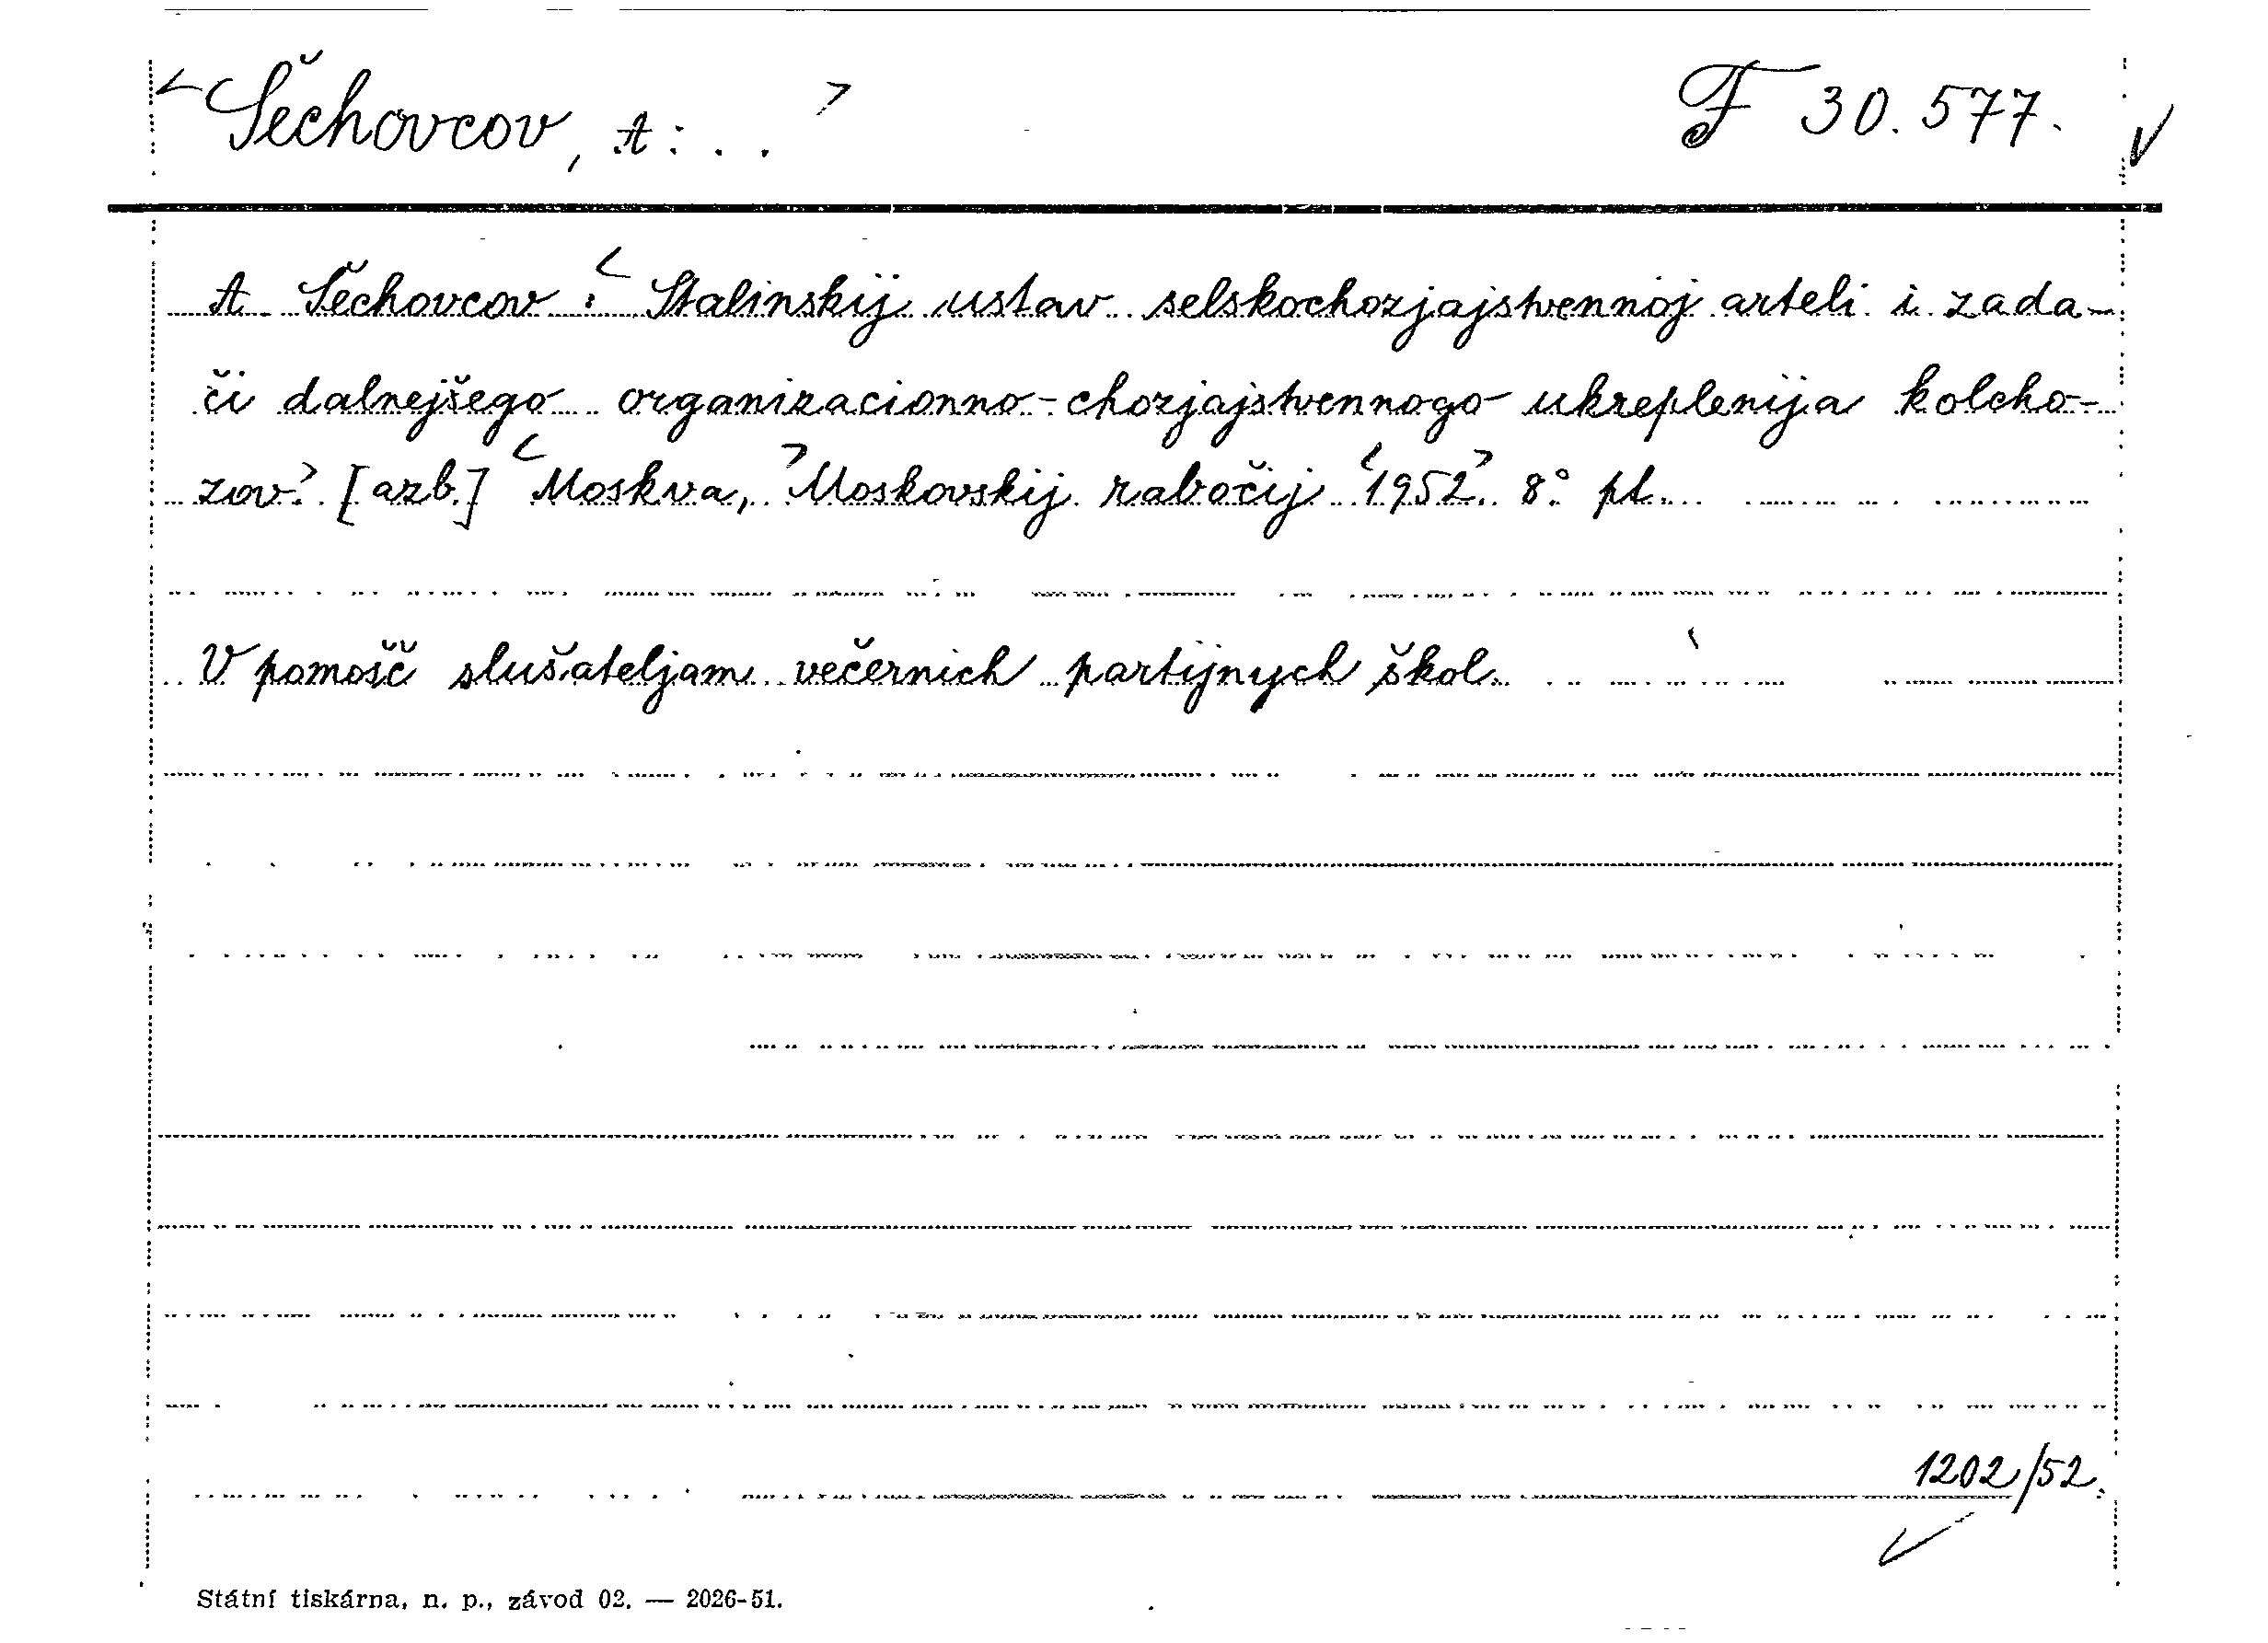 <Šechovcov, A: . . > F 30.577.
A. Šechovcov: <Stalinskij ustav selskochozjajstvennoj arteli i zada-
či dalnejšego organizacionno-chozjajstvennogo ukreplenija kolcho-
zov.> [azb.] <Moskva,> Moskovskij rabočij <1952>. 8° pt.
V pomošč slušateljam večernich partijnych škol.
1202/52.
Státní tiskárna, n. p., závod 02. — 2026-51.